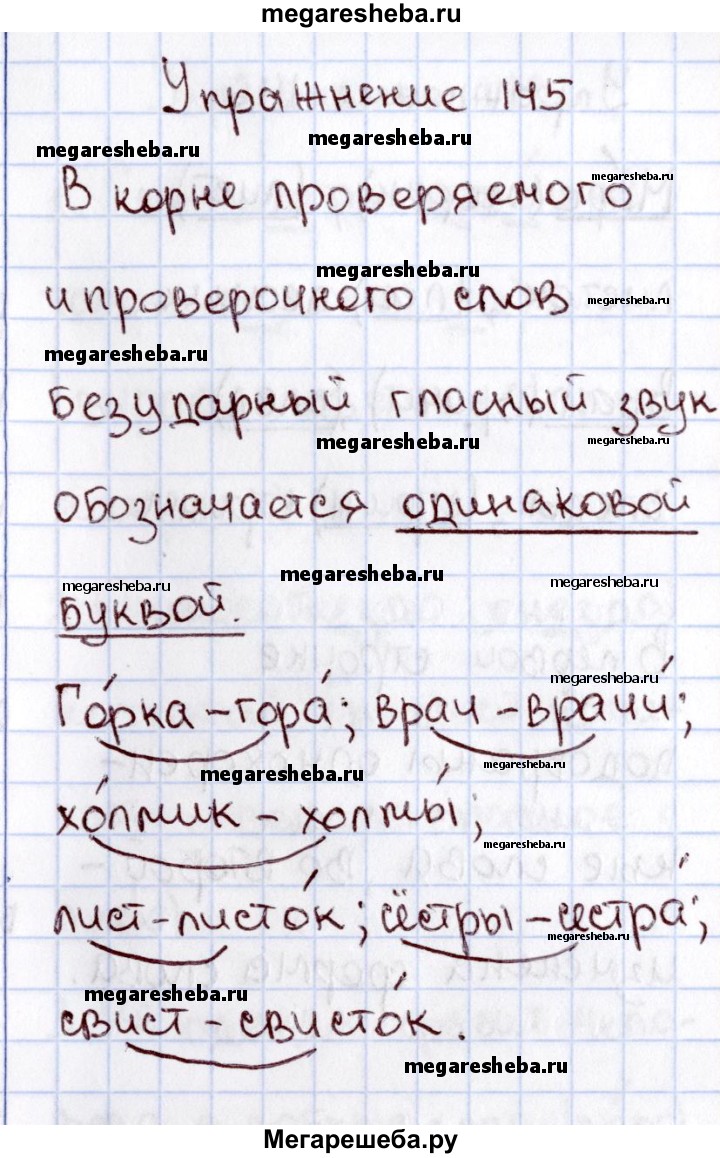 megaresheba.ru
Упражнение 145
megaresheba.ru
megaresheba.ru
megaresheba.ru
В корне проверяемого
megaresheba.ru
и проверочного слов
megaresheba.ru
megaresheba.ru
безударный гласный звук
megaresheba.ru
megaresheba.ru
обозначается одинаковой
megaresheba.ru
megaresheba.ru
megaresheba.ru
буквой.
megaresheba.ru
Го́рка – гора́; врач – врачи́;
megaresheba.ru
megaresheba.ru
хо́лмик – холмы́;
megaresheba.ru
лист – листо́к; сёстры – сестра́;
megaresheba.ru
megaresheba.ru
свист – свисто́к.
megaresheba.ru
Мегарешеба.ру